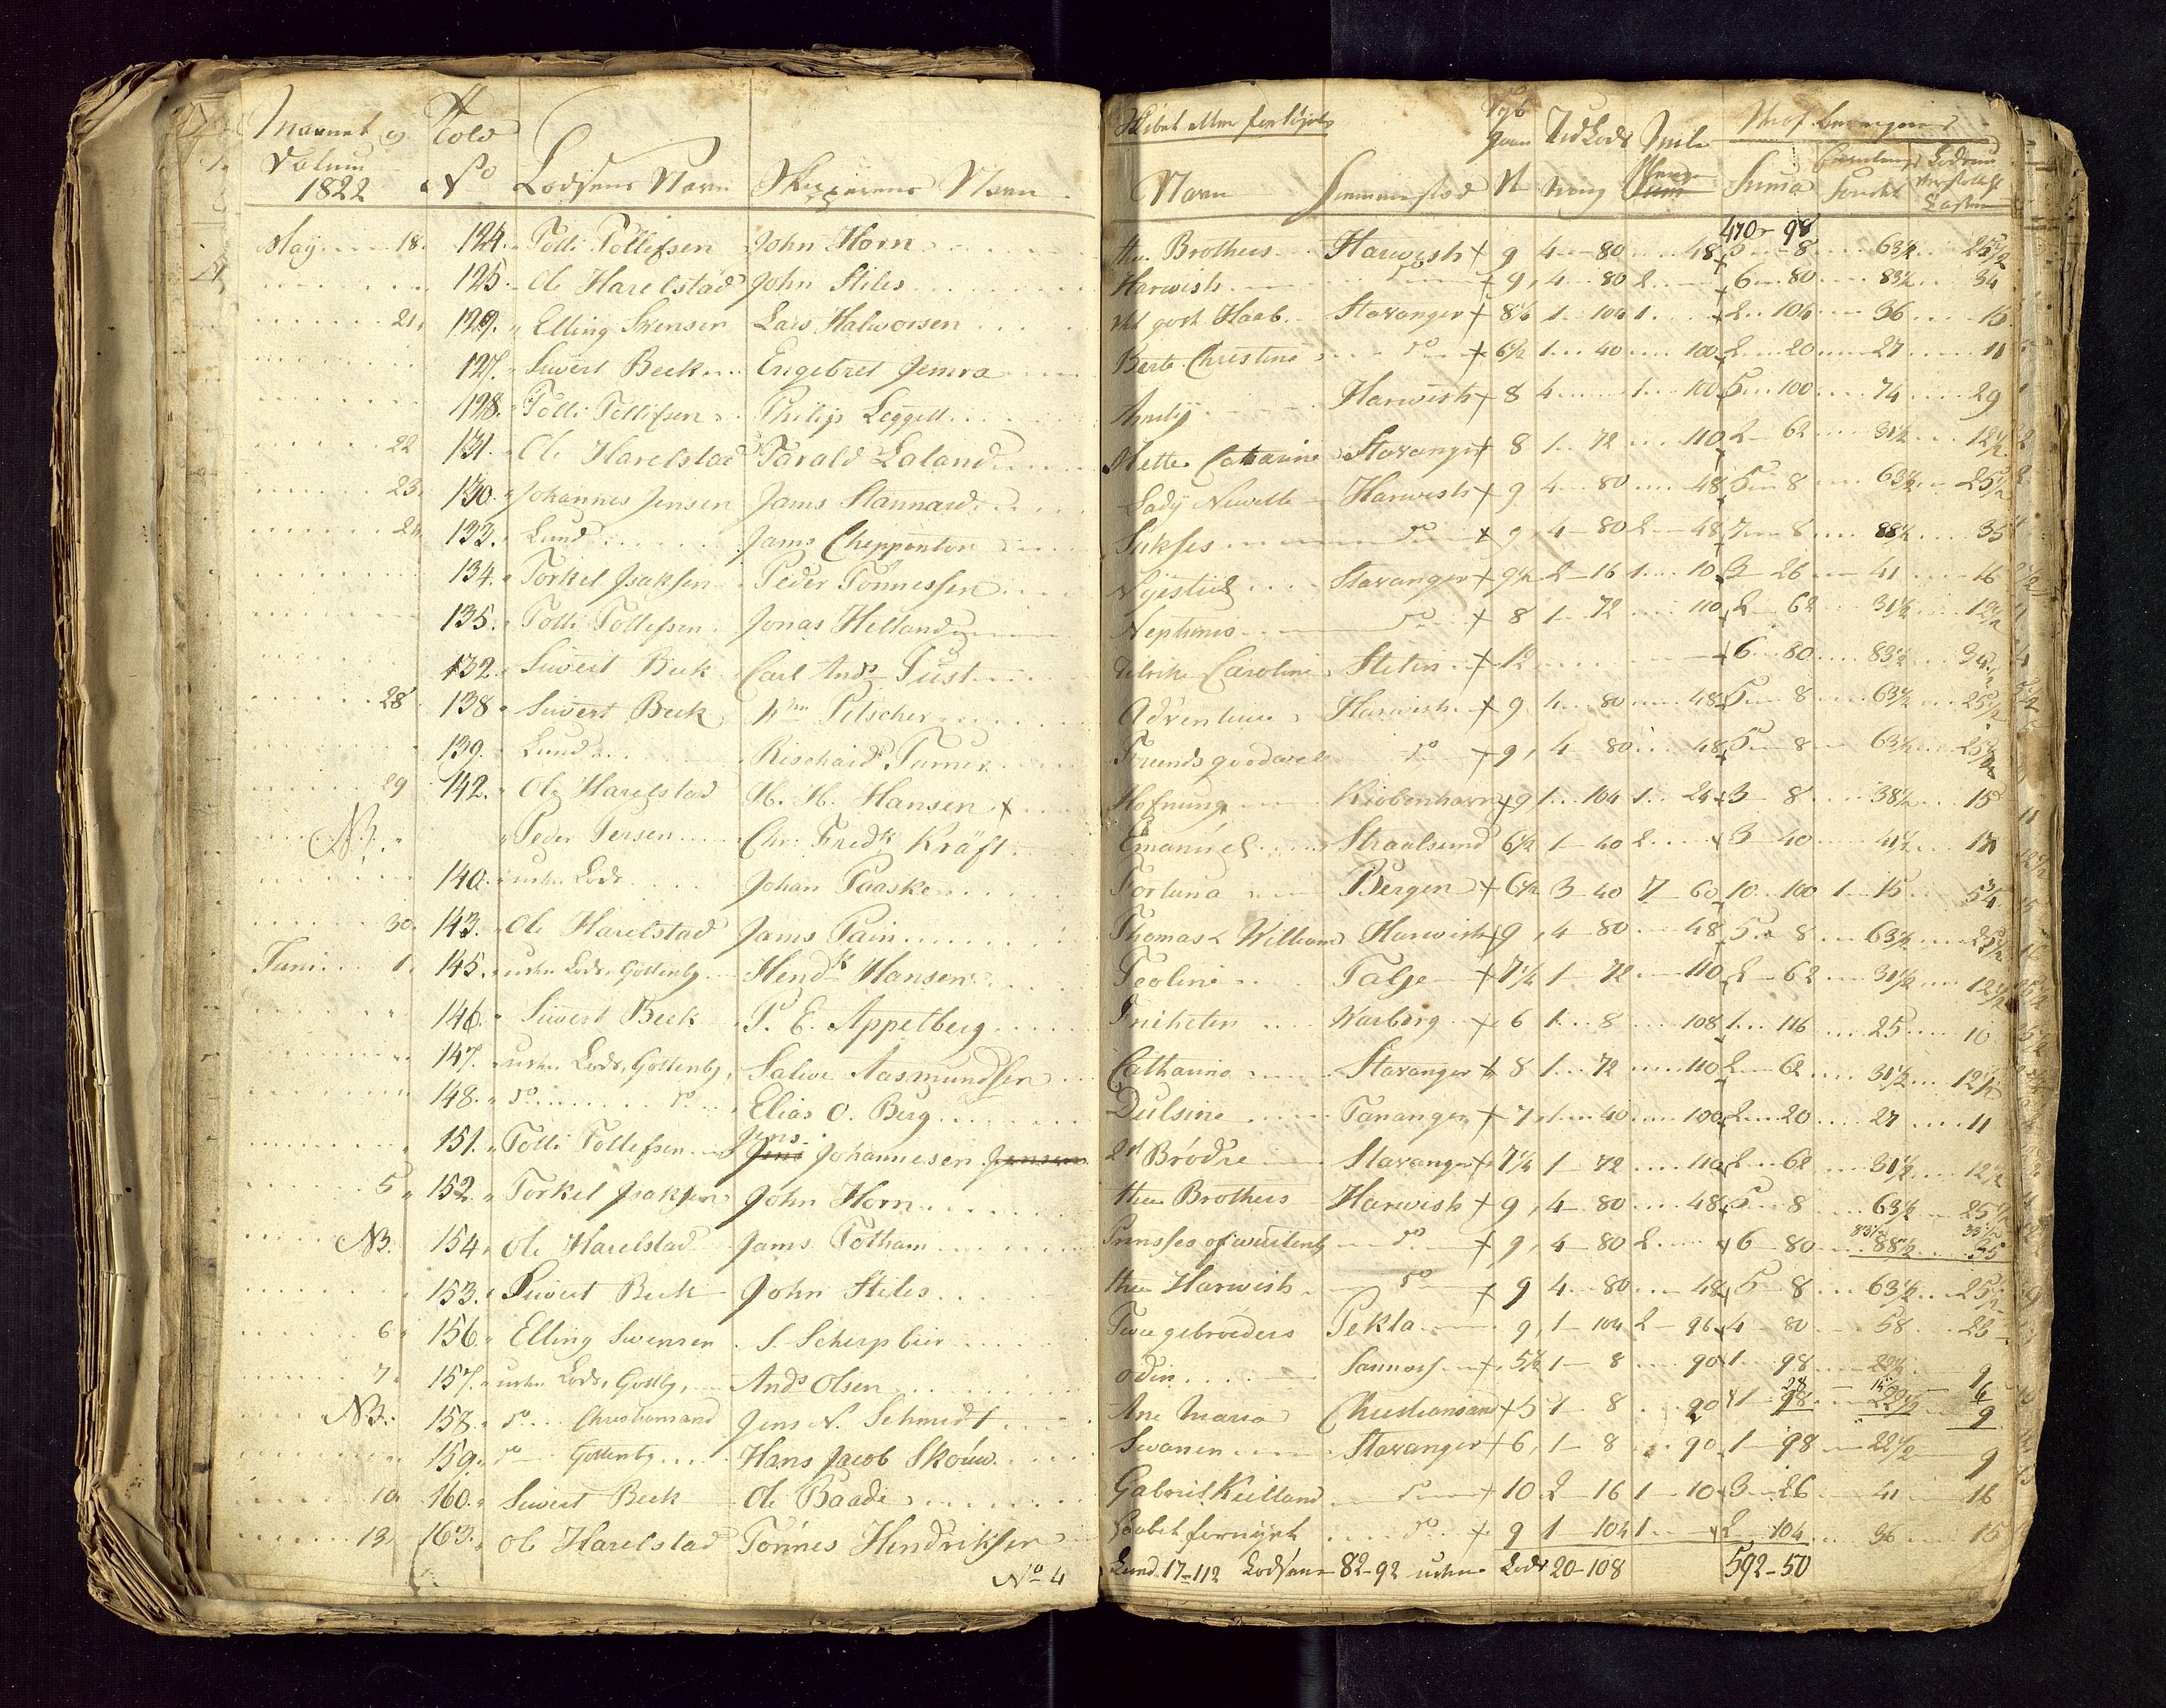 Maanet og Told
Datum
1822 No Lodsens Navn Skipperens Navn
May 18. 124. Tolli Tollefsen John Horn
125. Ole Harelstad John Stiles
21. 129. Elling Svensen Lars Halworsen
127. Siwert Beck Engebret Jemra
128. Tolli Tollefsen Philip Leggett
22 131. Ole Harelstad Tarald Laland
23. 130. Johannes Jensen Jams Stannard
24 133. Lund Jams Chepponton
134. Torkel Isaksen Peder Tönnessen
135. Tolli Tollefsen Jonas Helland
132. Siwert Beck Carl Ands Just
28 138 Siwert Beck Wm Pitscher
139. Lund Rischard Turner
29 142. Ole Harelstad H. H. Hansen
NB. Peder Iversen Chr: Fredk Kräft
140. uden Lods Johan Paaske
30. 143. Ole Harelstad Jams Pain
Juni 1. 145. uden Lods, Gottenbg Hendk Hansen
146. Siwert Beck P. E. Appelberg
147. uden Lods, Gottenbg, Salwe Aasmundsen
148. do do Elias O. Berg
151. Tolli Tollefsen Jens Johannesen
5 152. Torkel Isaksen John Horn
NB. 154. Ole Harelstad Jams Totham
153. Siwert Beck John Stiles
6 156. Elling Swensen S. Scherpbier
7 157. uden Lods, Gottbg, Ands Olsen
NB. 158. do Christiansand Jens N. Schmidt
159. do Gottenbg Hans Jacob Skouw
10 160. Siwert Beck Ole Baade
13 163. Ole Harelstad Tönnes Hendriksen
No 4
Navn Hiemmestod Summa
470 - 98
the Brothers Harwish 9 4 80 48 5 8 63½ 25½
Harwish do 9, 4 80 2 6 80 83½ 34
det godt Haab Stavanger 8¼ 1 104 1 2 104 36 15
Berte Christine do 6½ 1 40 100 2 20 27 11
Amity Harwish 8 4 1 100 5 100 74 29
Mette Catharine Stavanger 8 1 72 110 2 62 31½ 12½
Lady Newille Harwish 9 4 80 48 5 8 63½ 25½
Sukses do 9, 4 80 2 48 7 8 88½ 35
Nyestied Stavanger 9½ 2 16 1 10 3 26 41 16
Neptunus do 8 1 72 110 2 62 31½ 12½
Ulrike Caroline Stetin 12 6 80 83½
Adventure Harwish 9 4 80 48 5 8 63½ 25½
Friends goodwill do 9, 4 80 48 5 8 63½ 25½
Hofnung Kiobenhavn 9 1 104 1 24 3 8 38½ 15
Emanuel Straalsund 6½ 1 40 2 3 40 41½ 17
Fortuna Bergen 6½ 3 40 7 60 10 100 1 15
Thomas & William Harwish 9, 4 80 48 5 8 63½ 25½
Teoline Talge 7¼ 1 72 110 2 62 31½ 12½
Friheten Warberg 6 1 8 108 1 116 25 10
Catharina Stavanger 8 1 72 110 2 62 31½ 12½
Dulsine Tananger 7, 1 40 100 2 20 27 11
2de Brödre Stavanger 7¼ 1 72 110 2 62 31½ 12½
the Brothers Harwish 9, 4 80 48 5 8 63½ 25½
Prinsses of wurtenbg do 9, 4 80 2 6 80 83½ 88½ 33½ 35
the Harwish do 9 4 80 48 5 8 63½ 25½
Twe gebroeders Pekla 9, 1 104 2 96 4 80 58 23
Odin 5½ 1 8 90 1 98 22½ 9
Ane Maria Christiansand 5 1 8 90 1 28 98 15 22½ 6 9
Swanen Stavanger 6, 1 8 90 1 98 22½ 9
Gabriel Kielland do 10 2 16 1 10 3 26 41 16
Haabet fornyet do 9 1 104 1 2 104 36 15
Lund 17-112 Lodsene 82-92 uden Lods 20-108 592-50